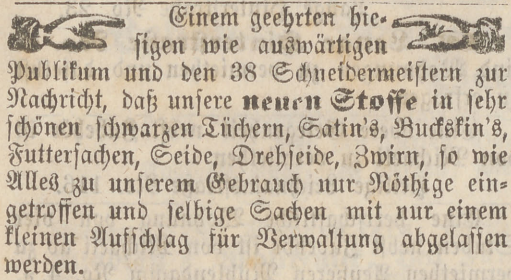 Einem geehrten hie-
sigen wie auswärtigen
Publikum und den 38 Schneidermeistern zur
Nachricht, daß unsere neuen Stoffe in sehr
schönen schwarzen Tüchern, Satin's, Buckskin's,
Futtersachen, Seide, Drehseide, Zwirn, so wie
Alles zu unserem Gebrauch nur Nöthige ein-
getroffen und selbige Sachen mit nur einem
kleinen Aufschlag für Verwaltung abgelassen
werden.